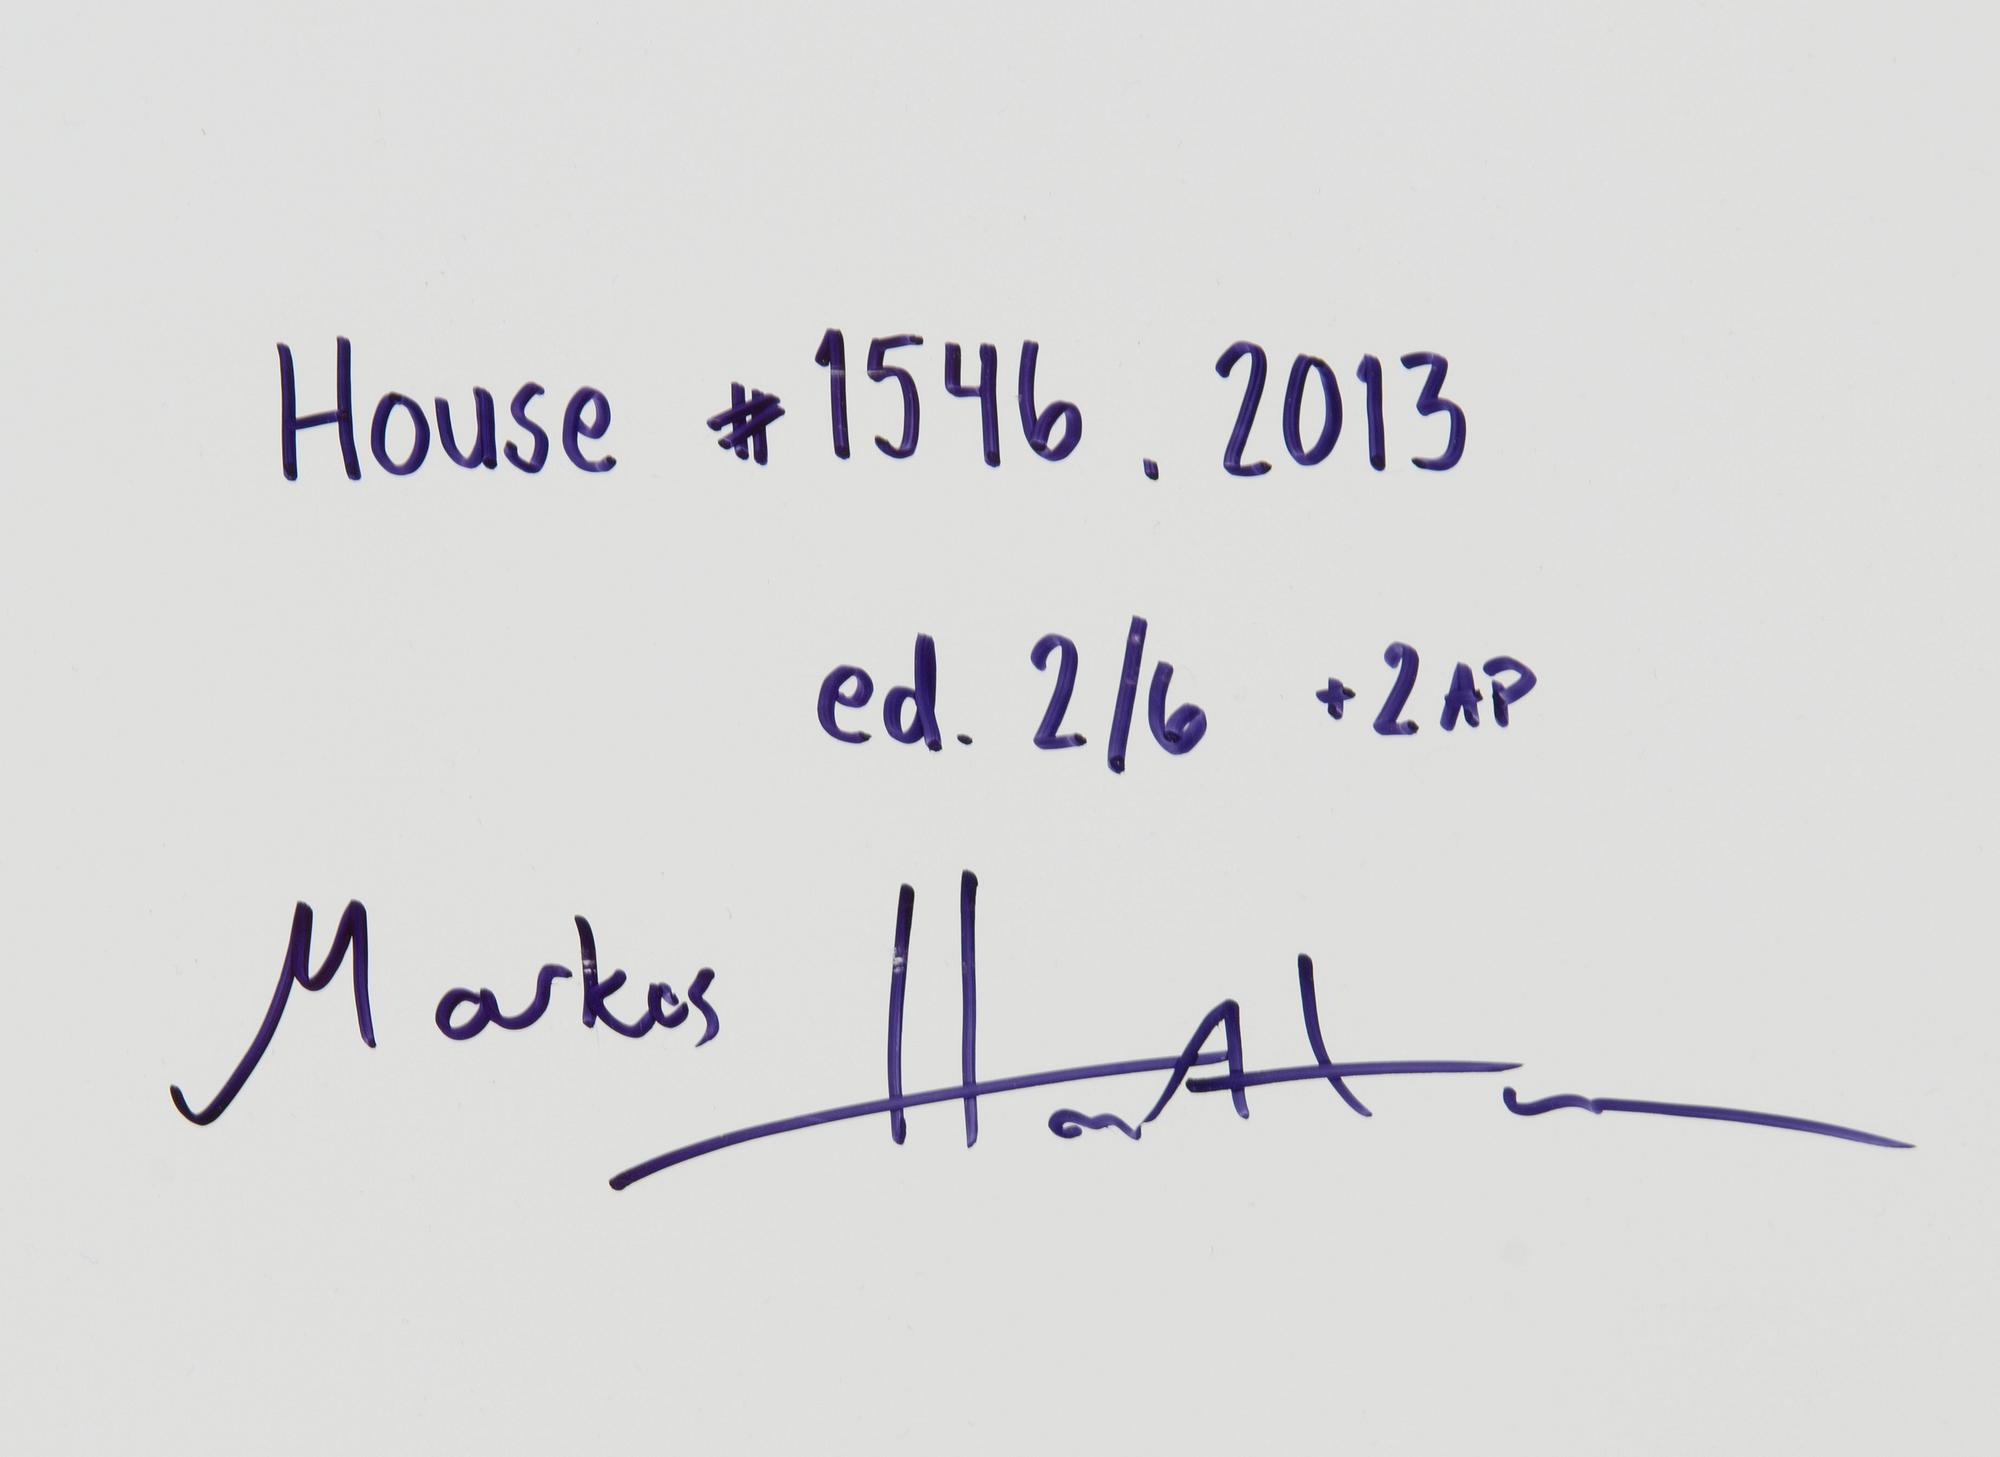 House #1546. 2013
ed. 2/6 +2AP
Markus